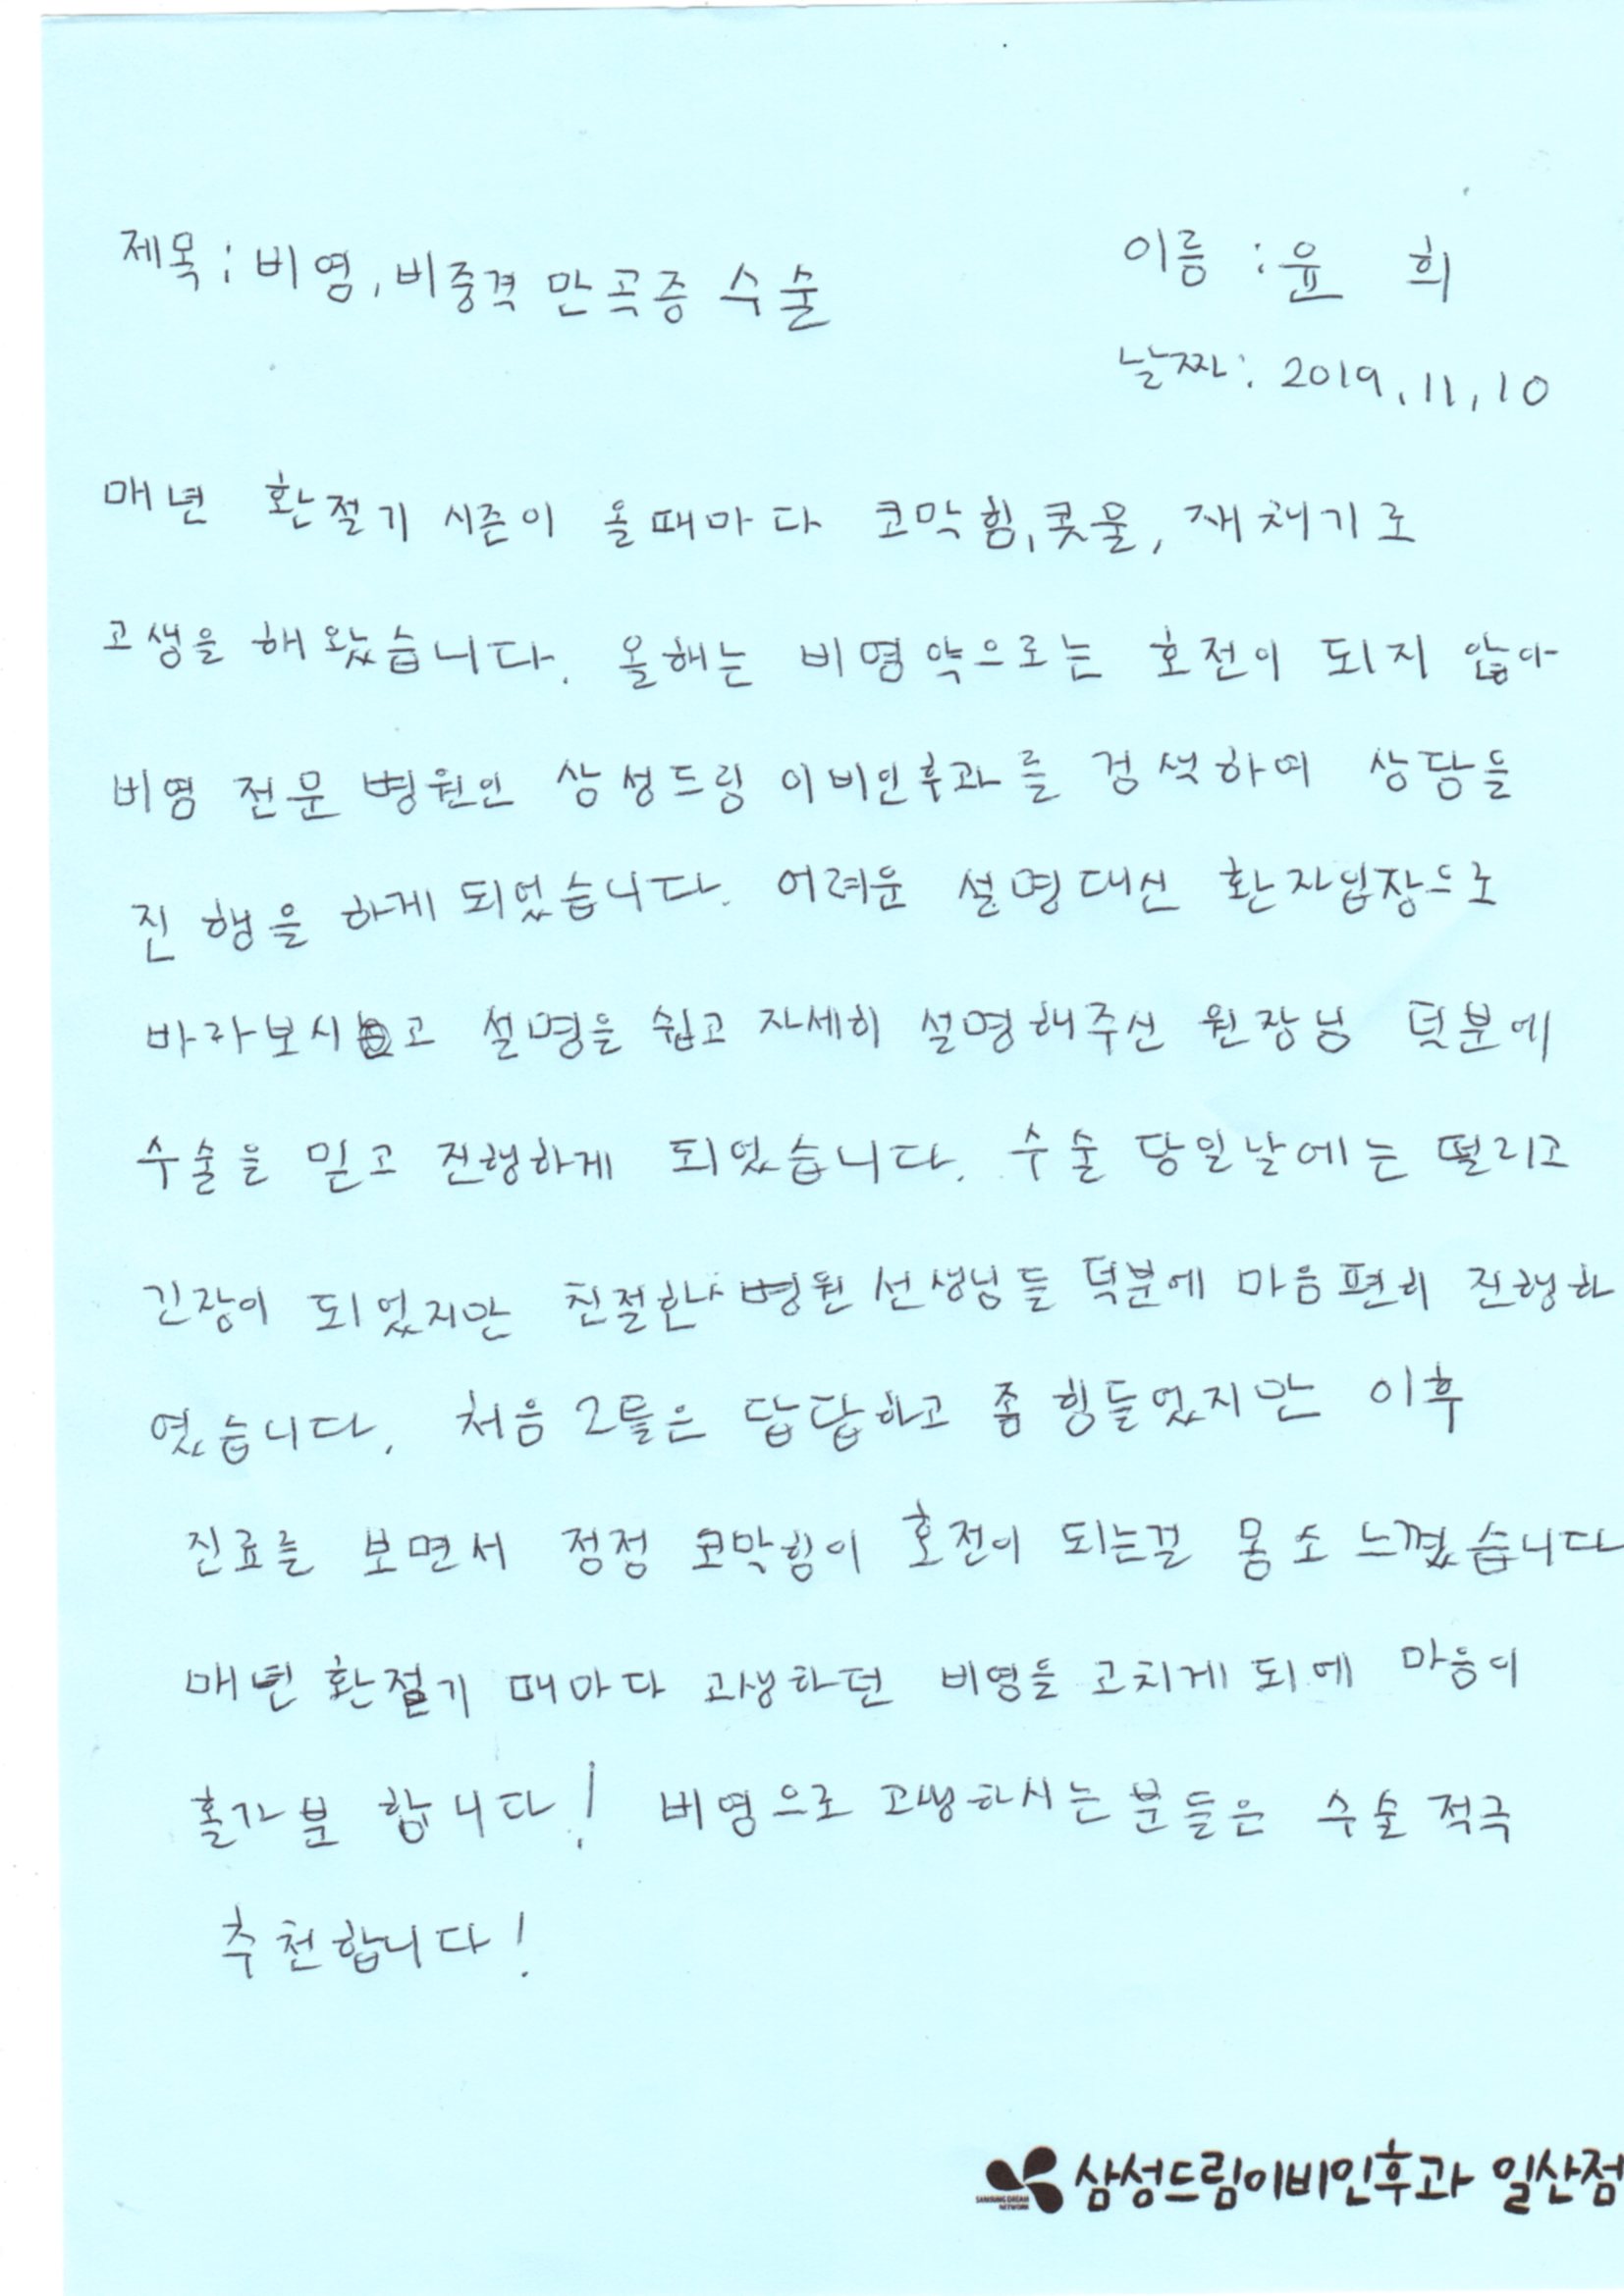 제목 : 비염, 비중격 만곡증 수술
이름 : 윤 희
날짜 : 2019. 11. 10
매년 환절기 시즌이 올때마다 코막힘, 콧물, 재채기로
고생을 해왔습니다. 올해는 비염약으로는 호전이 되지 않아
비염 전문 병원인 삼성드림 이비인후과를 검색하여 상담을
진행을 하게 되었습니다. 어려운 설명대신 환자입장으로
바라보시고 설명을 쉽고 자세히 설명해주신 원장님 덕분에
수술을 믿고 진행하게 되었습니다. 수술 당일날에는 떨리고
긴장이 되었지만 친절한 병원 선생님들 덕분에 마음편히 진행하
였습니다. 처음 2틀은 답답하고 좀 힘들었지만 이후
진료를 보면서 점점 코막힘이 호전이 되는걸 몸소 느꼈습니다
매년 환절기 때마다 고생하던 비염을 고치게 되에 마음이
홀가분 합니다! 비염으로 고생하시는분들은 수술 적극
추천합니다!
SAMSUNG DREAM
NETWORK
삼성드림이비인후과 일산점